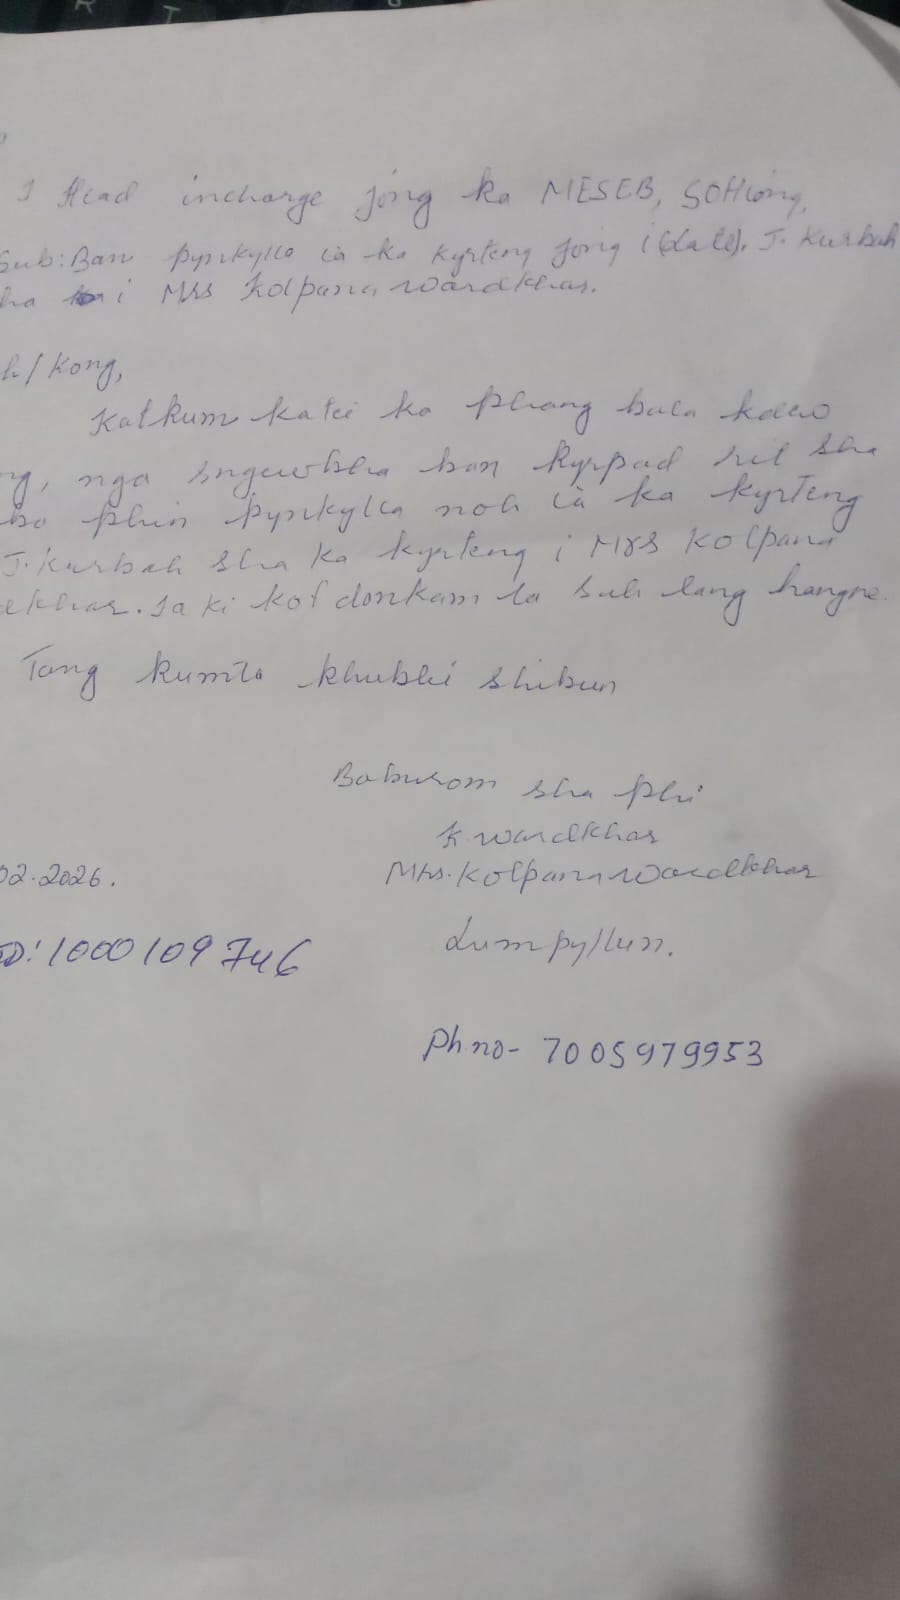 I Head incharge jong ka MESEB, SOHiong,
Sub: Ban pynkylla ia ka kyrteng jong i (date). J. Kurbah
sha i Mrs Kolpana wardkhar.
h/Kong,
Katkum katei ka phang bala kdew
ng, nga sngewbha ban kyrpad sil sha
ba phin pynkylla noh ia ka kyrteng
J. Kurbah sha ka kyrteng i Mrs Kolpana
dkhar. Ia ki kot donkam la suh lang hangne.
Tang kumta khublei shibun
Baburom sha phi
K wardkhar
02.2026.
Mrs. Kolpana wardkhar
ID: 1000109746
Lumpyllun.
Ph.no- 7005979953